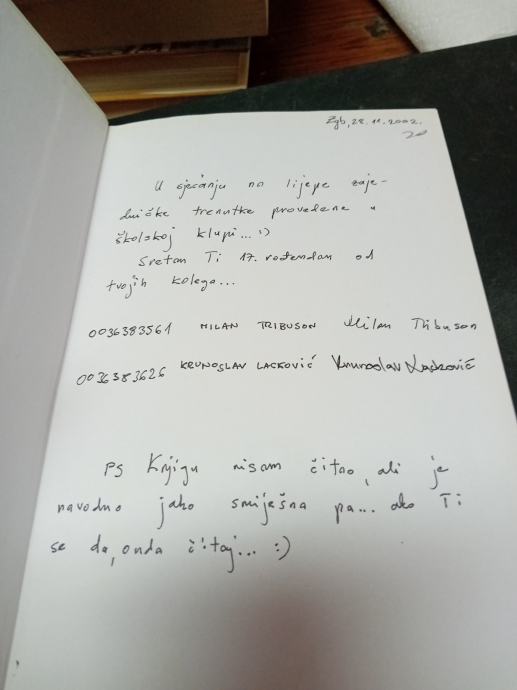 Zgb, 28. 11. 2002.
U sjećanju na lijepe zaje-
dničke trenutke provedene u
školskoj klupi... :)
Sretan Ti 17. rođendan od
tvojih kolega...
0036383561 MILAN TRIBUSON Milan Tribuson
0036383626 KRUNOSLAV LACKOVIĆ Krunoslav Lacković
PS Knjigu nisam čitao, ali je
navodno jako smiješna pa... ako Ti
se da, onda čitaj... :)